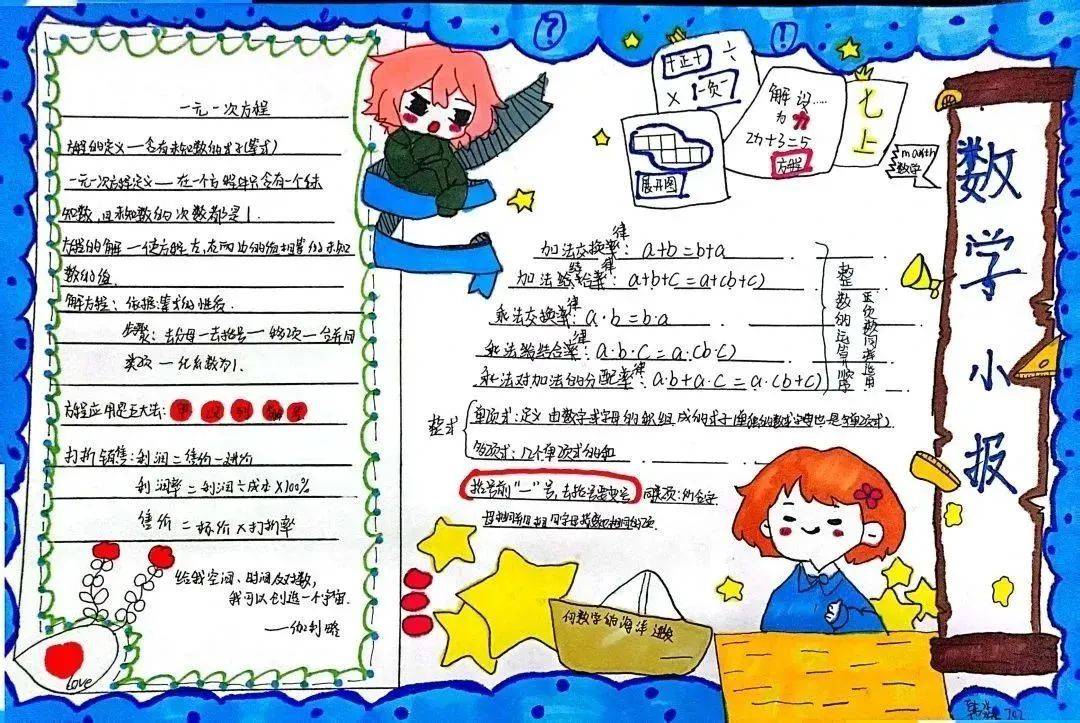 一元一次方程
方程的定义—含有未知数的式子(等式)
一元一次方程定义—在一个方程中只含有一个未
知数,且未知数的次数都是1.
方程的解—使方程左,右两边的值相等的未知
数的值.
解方程:依据:等式的性质.
步骤:去分母—去括号—移项—合并同
类项—化系数为1.
方程应用是五大法:审 设 列 解 答
打折销售:利润=售价-进价
利润率=利润÷成本×100%
售价=标价×打折率
给我空间、时间及对数,
我可以创造一个宇宙.
——伽利略
Love
?
!
十正十 ÷
× 一负一
展开图
解设.....
为
2x+3=5
方程
七上
math
数学
数学小报
加法交换律:a+b=b+a
加法结合律:a+b+c=a+(b+c)
乘法交换律:a·b=b·a
乘法结合律:a·b·c=a·(b·c)
乘法对加法的分配律:a·b+a·c=a·(b+c)
整数的运算顺序
正负数同样适用
整式
单项式:定义 由数字或字母的积组成的式子(单独的数或字母也是单项式)
多项式:几个单项式的和
括号前"—"号,去括号要变号
同类项:所含字
母相同,且相同字母指数也相同的项
向数学的海洋进发
702